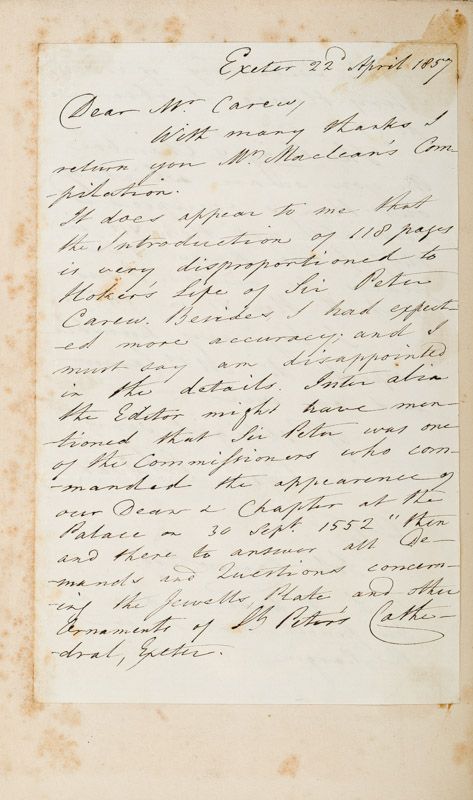 Exeter 22d April 1857
Dear Mr Carew,
With many thanks I
return you Mr Maclean's Com-
-pilation.
It does appear to me that
the Introduction of 118 pages
is very disproportioned to
Hoker's Life of Sir Peter
Carew. Besides I had expect-
-ed more accuracy, and I
must say am disappointed
in the details. Inter alia
the Editor might have men-
-tioned that Sir Peter was one
of the Commissioners who com-
-manded the appearence of
our Dean & Chapter at the
Palace on 30 Sept. 1552 "then
and there to answer all De-
-mands and Questions concern-
-ing the Jewells, Plate and other
Ornaments of St Peter's Cathe-
-dral, Exeter.